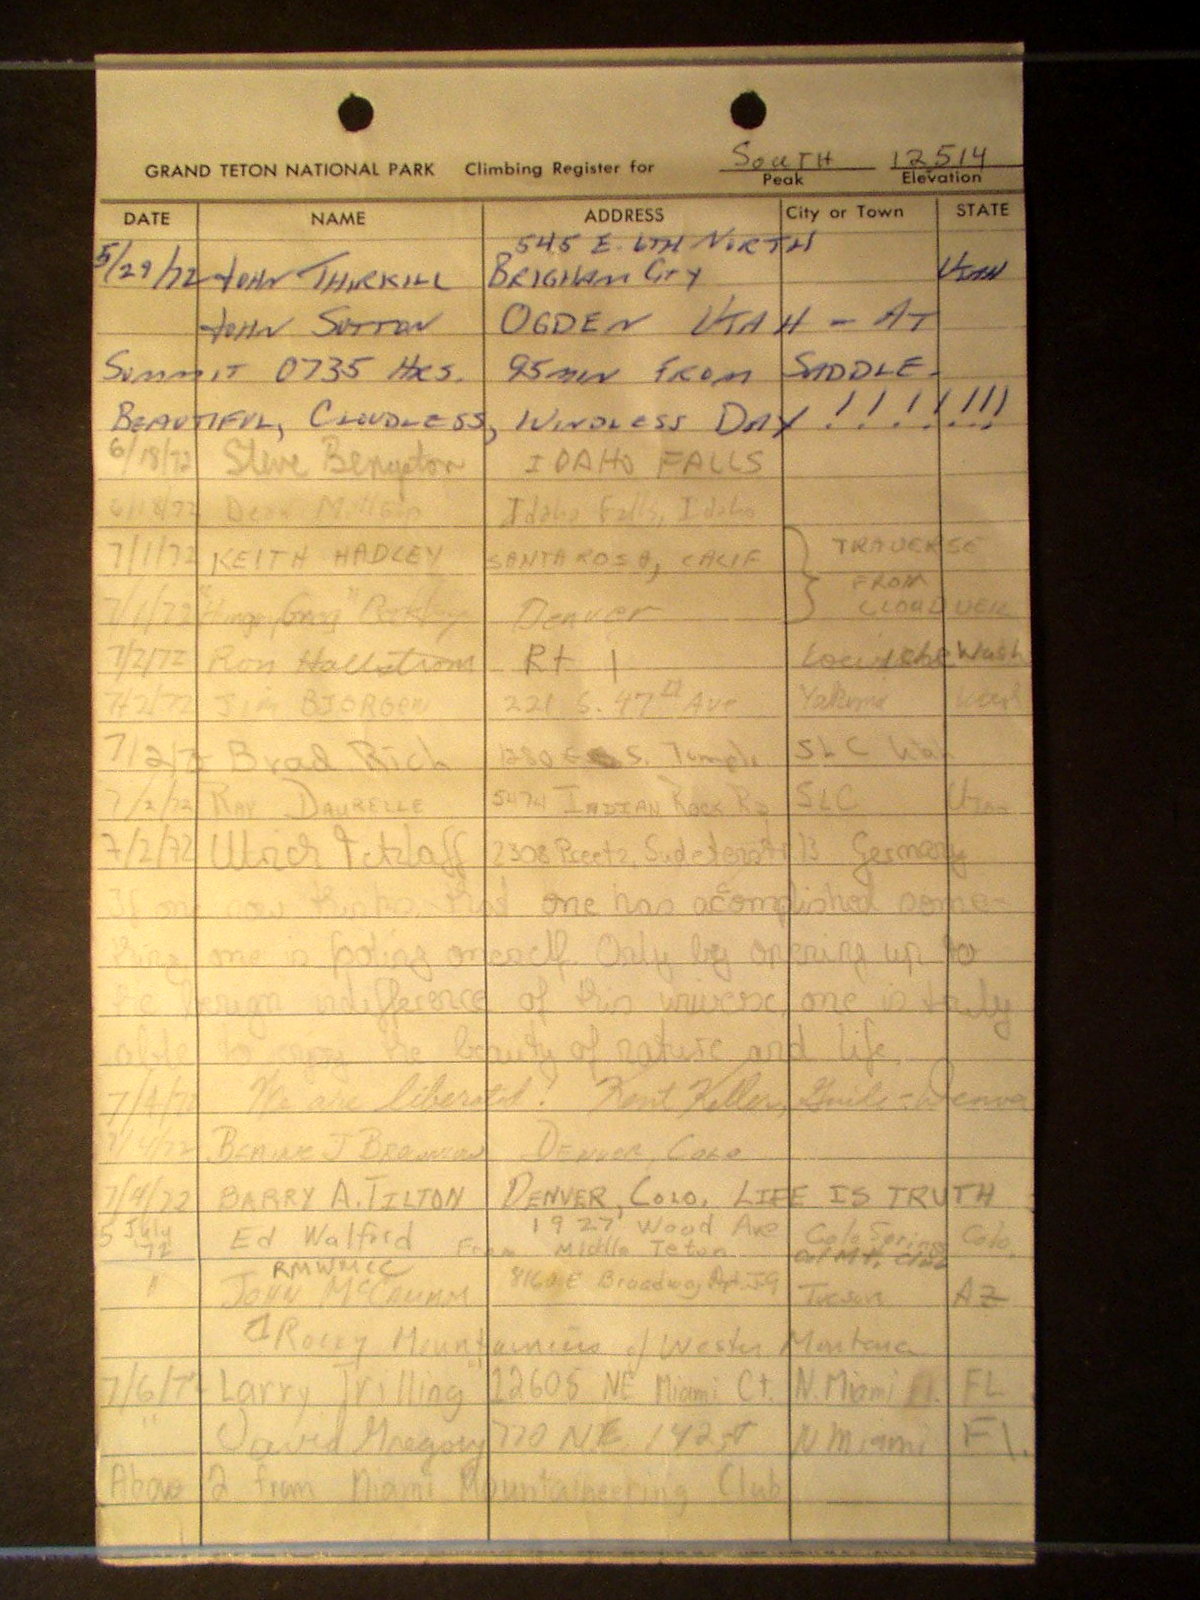 GRAND TETON NATIONAL PARK Climbing Register for SOUTH 12514
Peak Elevation
DATE NAME ADDRESS City or Town STATE
545 E. 6TH NORTH
5/29/72 JOHN THIRKILL BRIGHAM CITY UTAH
JOHN SUTTON OGDEN UTAH - AT
SUMMIT 0735 HRS. 95 MIN FROM SADDLE.
BEAUTIFUL, CLOUDLESS, WINDLESS DAY !!!!!!!
6/18/72 Steve IDAHO FALLS
6/18/72 Idaho Falls, Idaho
7/1/72 KEITH HADLEY SANTA ROSA, CALIF } TRAVERSE
FROM
7/1/72 Denver CLOUDVEIL
7/2/72 Ron Hallstrom Rt 1 Wash
7/2/72 Jim BJORGEN 221 S. 47th Ave Yakima Wash
7/2/72 Brad Rich 1280 E S. Temple SLC Utah
7/2/72 RAY DAURELLE 5474 INDIAN ROCK RD SLC UTAH
7/2/72 Ulrich Tetzlaff 2308 Preetz, 13 Germany
If one now thinks that one has acomplished some-
thing one is fooling oneself. Only by opening up to
the benign indifference of this universe, one is truly
able to enjoy the beauty of nature and life.
7/4/72 We are liberated! Kent Keller, Guide - Denver
7/4/72 DENVER, COLO
7/4/72 BARRY A. TILTON DENVER, COLO. LIFE IS TRUTH
5 July 72 Ed Walford 1927 Wood Ave Colo Springs Colo.
From Middle Teton Col Mt. Club
RMWMCC
" JOHN 8160 E Broadway Apt J9 Tucson AZ
Rocky Mountaineers of Western Montana
7/6/72 Larry Trilling 12605 NE Miami Ct. N. Miami FL
" David Gregory 770 NE 142 st N Miami Fl.
Above 2 from Miami Mountaineering Club